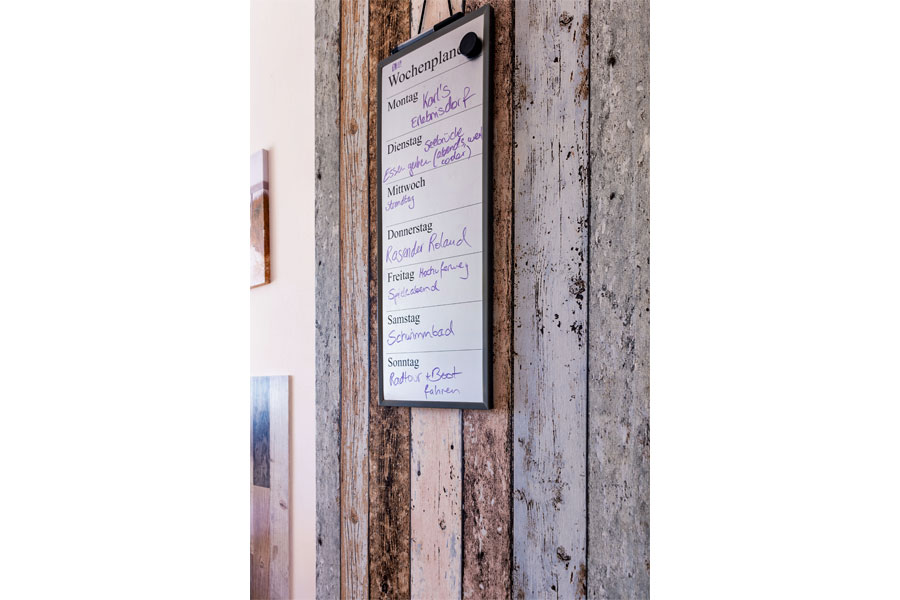 Wochenplaner
Montag Karl's
Erlebnisdorf
Dienstag Seebrücke
Essen gehen (abends, weit
Mittwoch
Strandtag
Donnerstag
Rasender Roland
Freitag Hochuferweg
Spieleabend
Samstag
Schwimmbad
Sonntag
Radtour + Boot
fahren